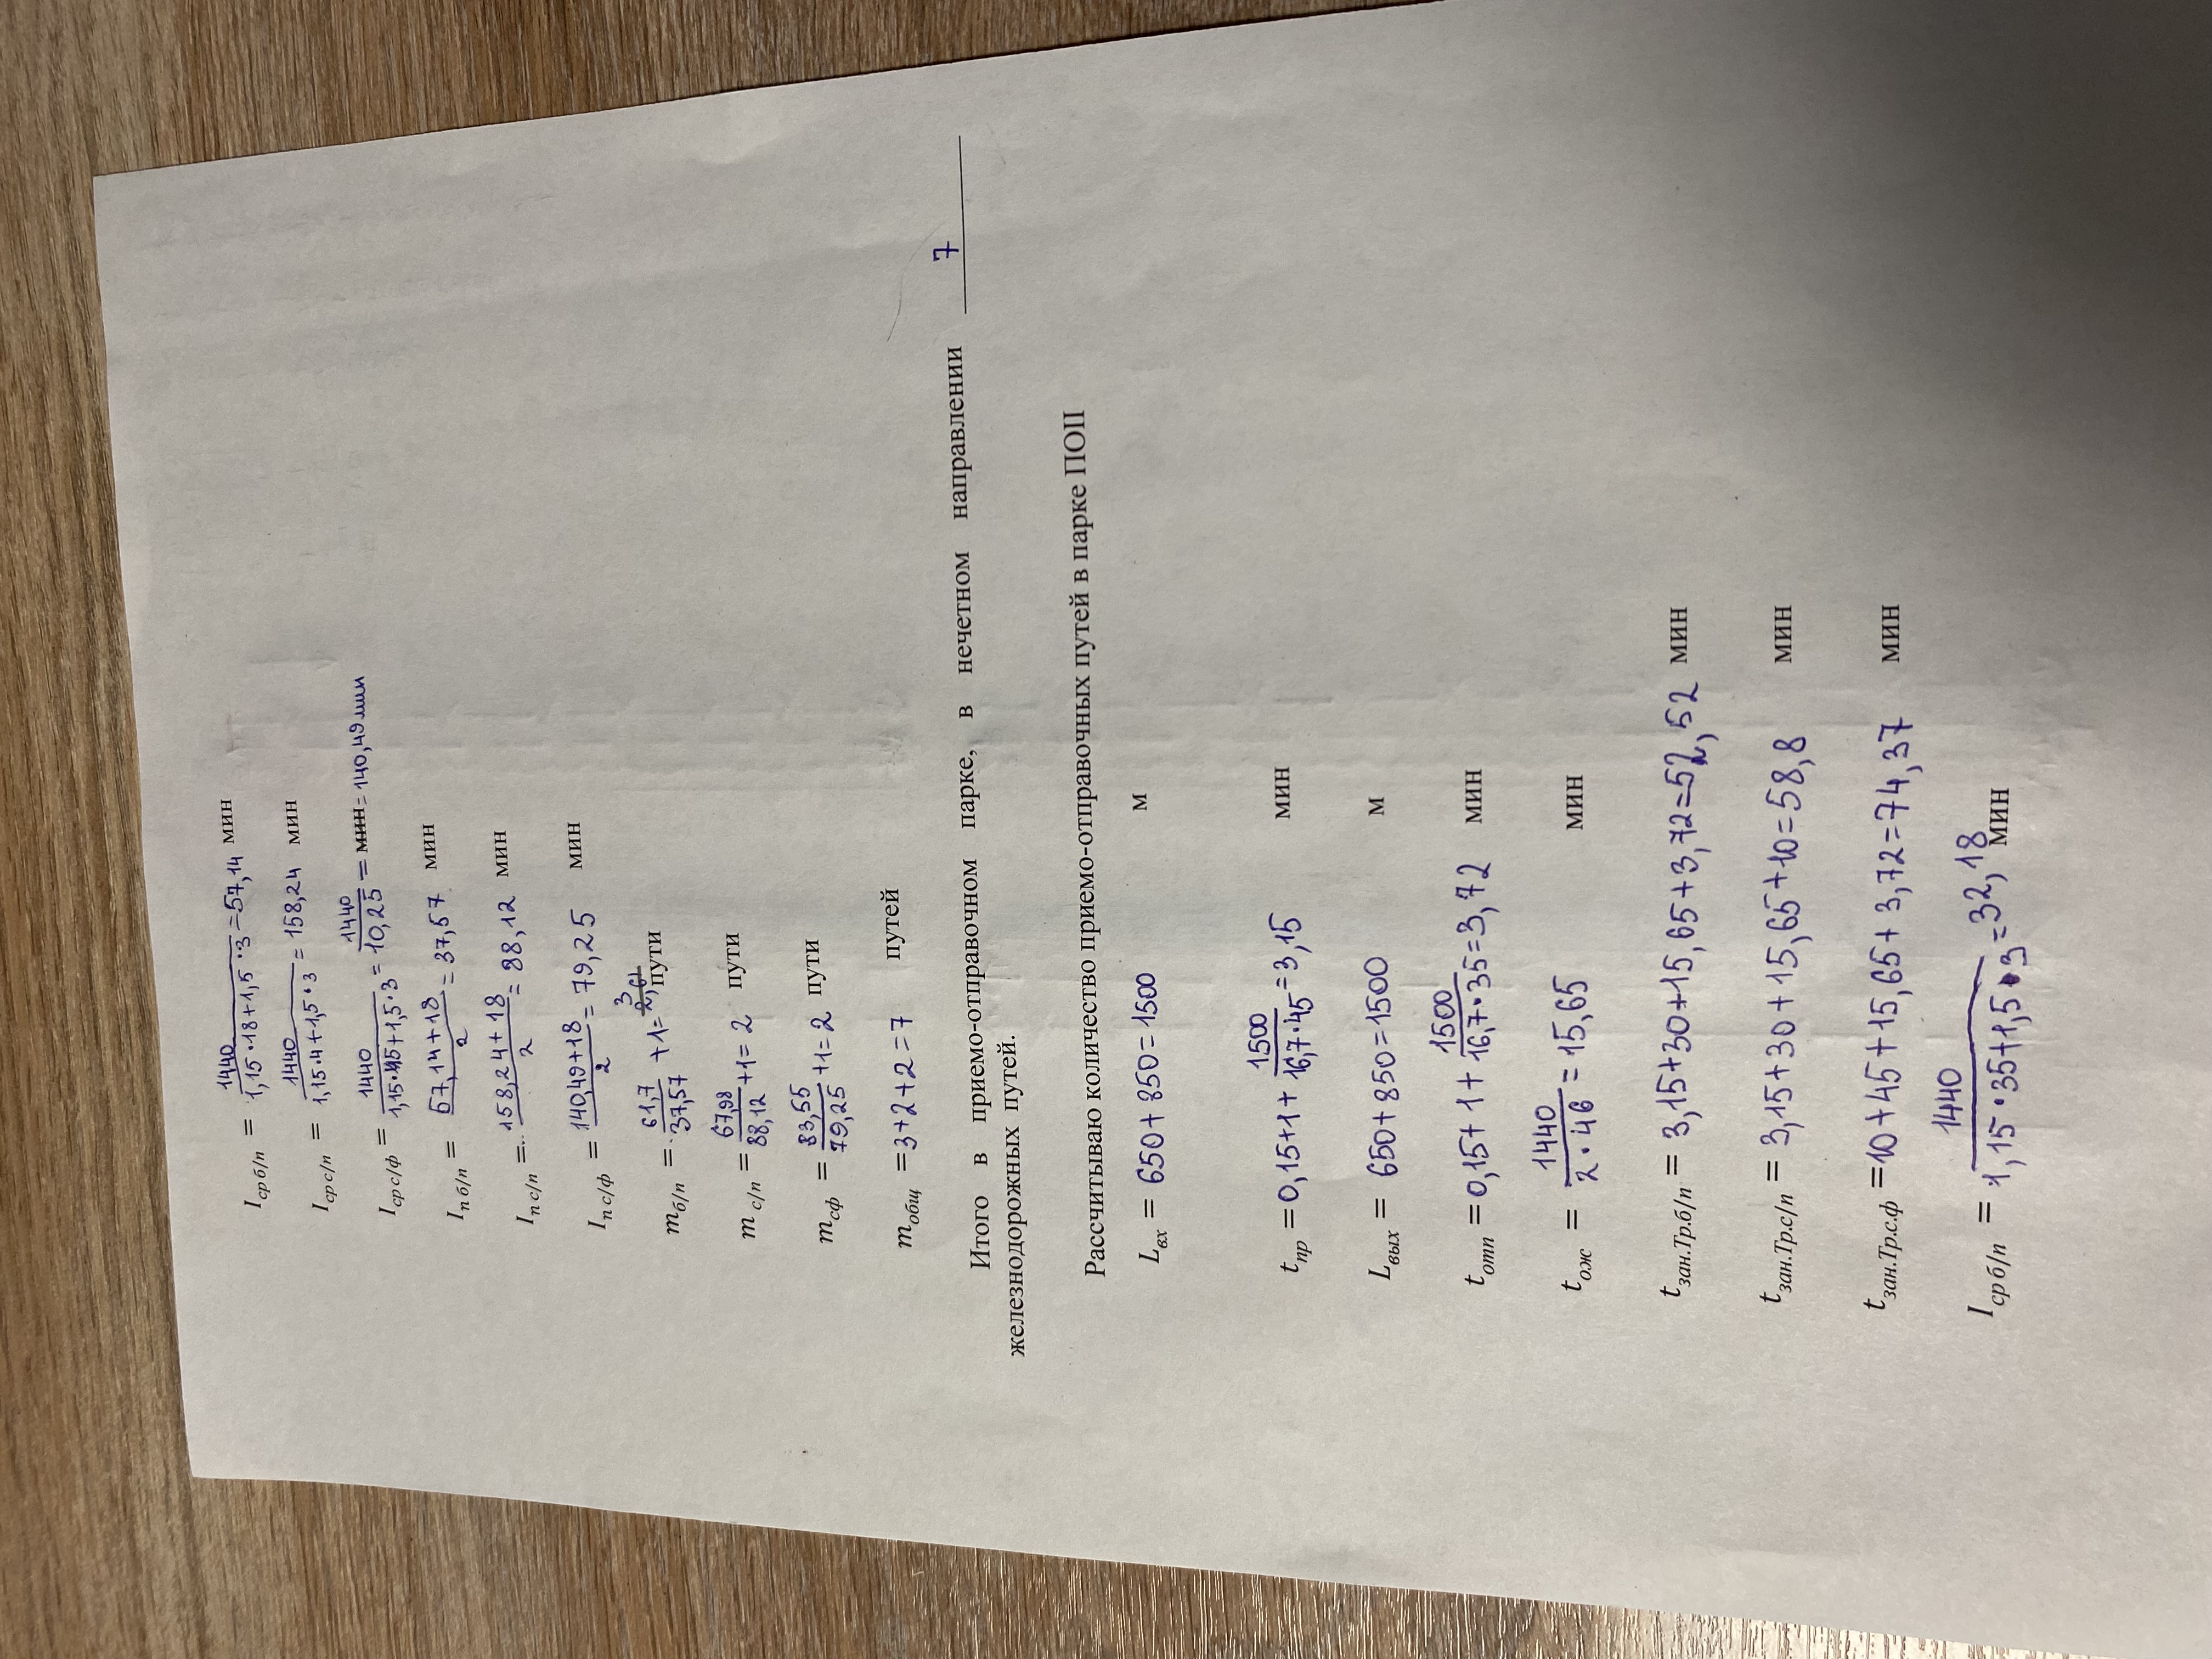 I ср б/п = 1440 / 1,15·18+1,5·3 = 57,14 мин
I ср с/п = 1440 / 1,15·4+1,5·3 = 158,24 мин
I ср с/ф = 1440 / 1,15·5+1,5·3 = 1440 / 10,25 = мин = 140,49 мин
I п б/п = 57,14+18 / 2 = 37,57 мин
I п с/п = 158,24+18 / 2 = 88,12 мин
I п с/ф = 140,49+18 / 2 = 79,25 мин
m б/п = 61,7 / 37,57 +1= 2,61 3 пути
m с/п = 67,98 / 88,12 +1= 2 пути
m сф = 83,55 / 79,25 +1= 2 пути
m общ = 3+2+2=7 путей
Итого в приемо-отправочном парке, в нечетном направлении 7
железнодорожных путей.
Рассчитываю количество приемо-отправочных путей в парке ПОП
L вх = 650+850=1500 м
t пр = 0,15+1+ 1500 / 16,7·45 = 3,15 мин
L вых = 650+850=1500 м
t отп = 0,15+1+ 1500 / 16,7·35 = 3,72 мин
t ож = 1440 / 2·46 = 15,65 мин
t зан.Тр.б/п = 3,15+30+15,65+3,72=52,52 мин
t зан.Тр.с/п = 3,15+30+15,65+10=58,8 мин
t зан.Тр.с.ф = 10+45+15,65+3,72=74,37 мин
I ср б/п = 1440 / 1,15·35+1,5·3 = 32,18 мин